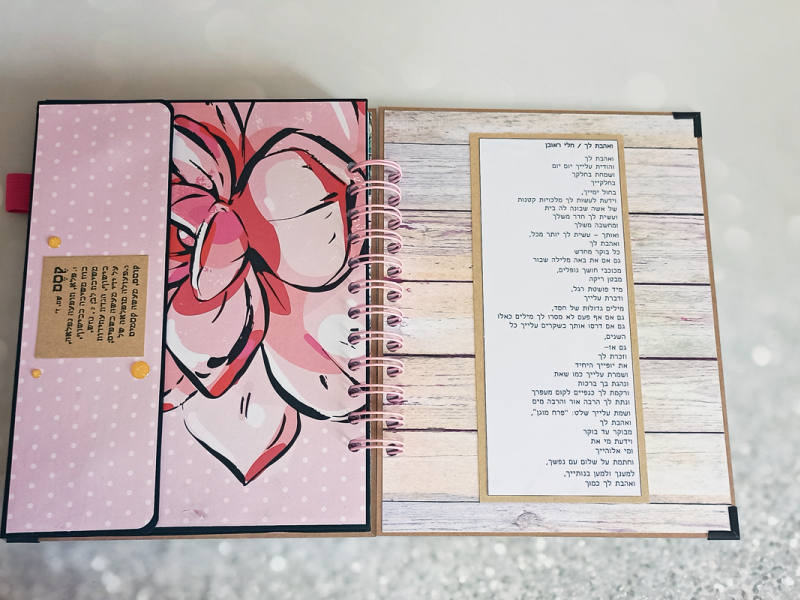 ואהבת לך / חלי ראובן
ואהבת לך
והודית עלייך יום יום
ושמחת בחלקך
בחלקייך
בחול ימייך,
וידעת לעשות לך מלכויות קטנות
של אשה שבונה לה בית
ועשית לך חדר משלך
ומחשבה משלך
ואותך – עשית לך יותר מכל,
ואהבת לך
כל בוקר מחדש
גם אם את באה מלילה שבור
מכוכבי חושך נופלים,
מבטן ריקה
מיד פושטת רגל,
ודברת עלייך
מילים גדולות של חסד,
גם אם אף פעם לא מסרו לך מילים כאלו
גם אם דרסו אותך בשקרים עלייך כל
השנים,
גם אז–
וזכרת לך
את יופייך היחיד
ושמרת עלייך כמו שאת
ונהגת בך ברכות
ורקמת לך כנפיים לקום מעפרך
ונתת לך הרבה אור והרבה מים
ושמת עלייך שלט: "פרח מוגן",
ואהבת לך
מבוקר עד בוקר
וידעת מי את
ומי אלוהייך
וחתמת על שלום עם נפשך,
למענך ולמען בנותייך,
ואהבת לך כמוך
קסם